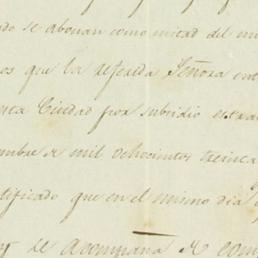 do se abonan como mitad del m
os que la referida Señora ent
sta Ciudad por subsidio estra
mbre de mil ochocientos treinta
tificado que en el mismo dia
se acompaña